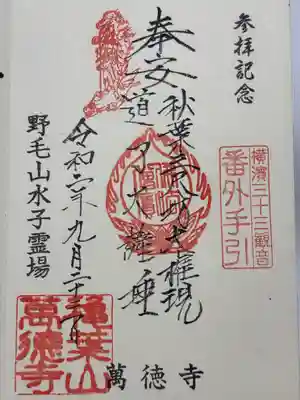 参拝記念
奉安
秋葉三尺坊大権現
道了大薩埵
横濱三十三観音
番外手引
萬徳寺
令和六年九月二十三日
野毛山水子霊場
萬徳寺